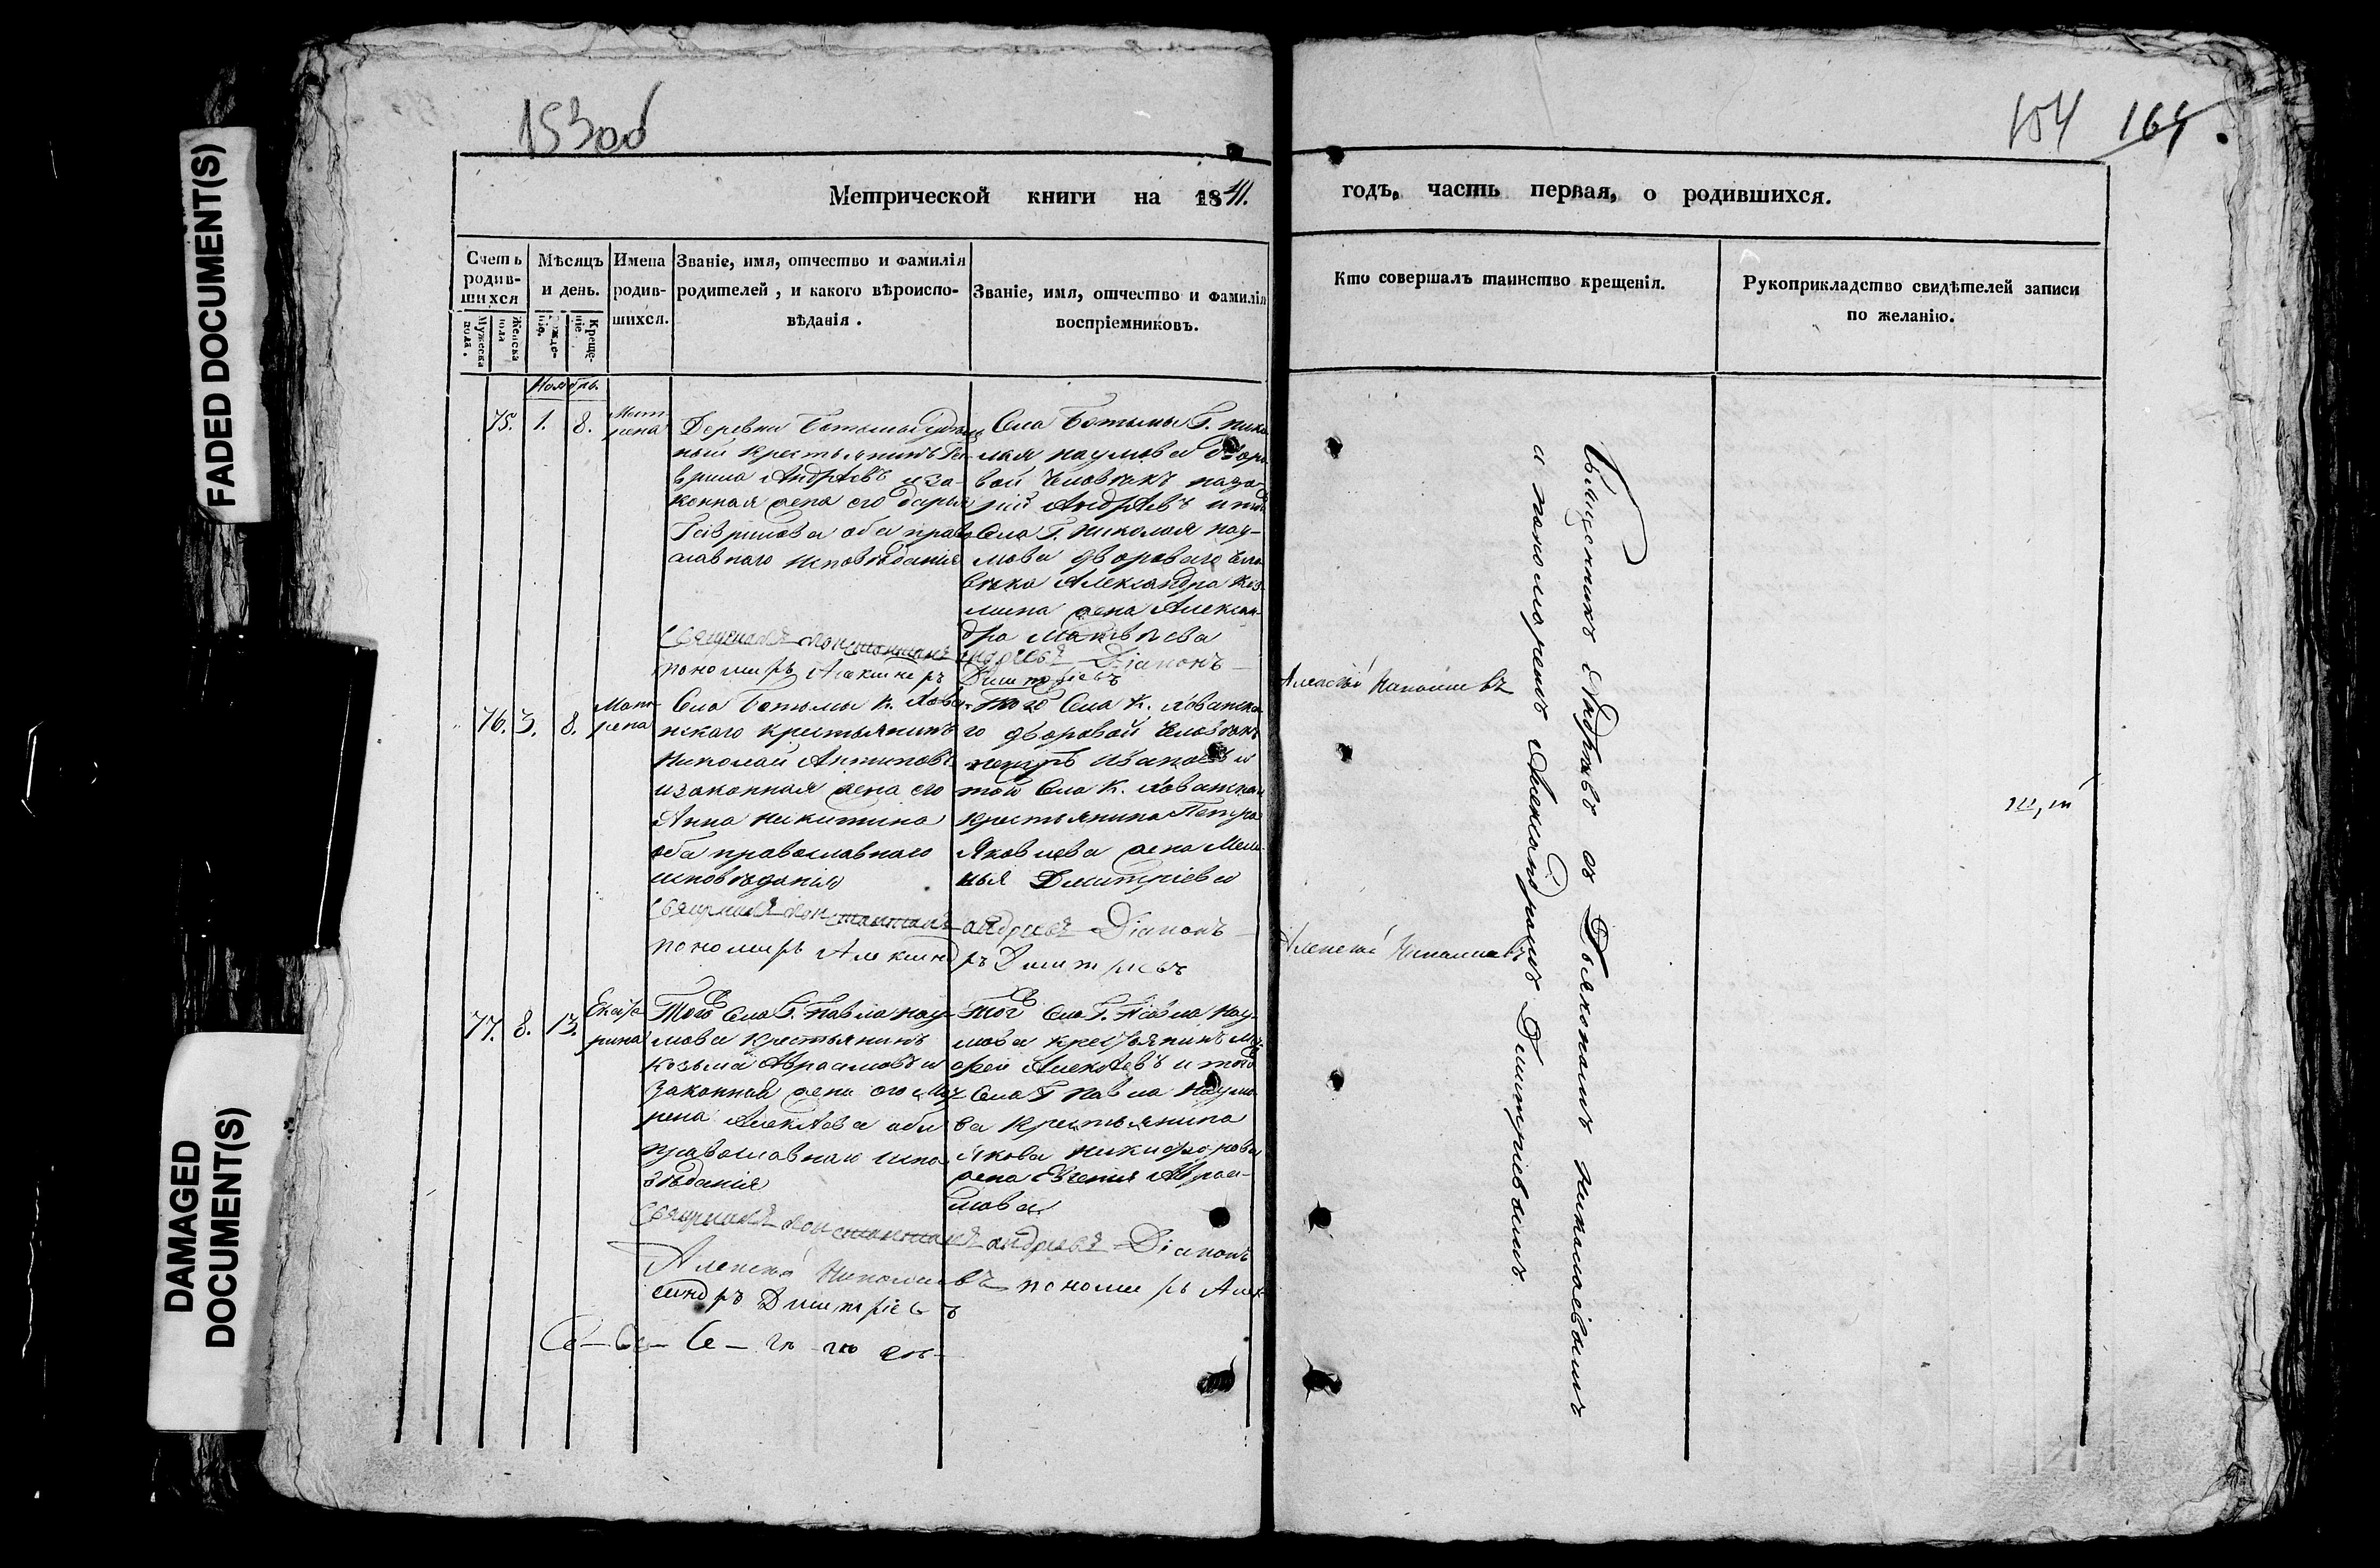 FADED DOCUMENT(S)
DAMAGED
DOCUMENT(S)
153об
154 164
Метрической книги на 1841.
годъ, часть первая, о родившихся.
Счетъ
родив-
шихся
Мужеска
пола.
Женска
пола
Мѣсяцъ
и день.
Рожде-
нія.
Креще-
ніе
Имена
родив-
шихся.
Званіе, имя, отчество и фамилія
родителей, и какого вѣроиспо-
вѣданія.
Званіе, имя, отчество и фамилія
воспріемниковъ.
Кто совершалъ таинство крещенія.
Рукоприкладство свидѣтелей записи
по желанію.
Ноябрь
75. 1. 8.
Мат
рена
Деревни
крестьянинъ Га-
врила Андрѣевъ и за-
конная жена его Дарья
Гаврилова оба право
славнаго исповѣданія
Села Г. Нико
лая Наумова дворо
вой человѣкъ наза
рій Андрѣевъ и того
Села Г. Николая нау-
мова двороваго чело
вѣка Александра Коз
мина жена Алексан
дра Матвѣева
Священникъ Константинъ андреевъ Діаконъ
Алексѣй Николаевъ
пономарь Александръ Димитріевъ
76. 3. 8.
Мат
рена
Села К. Хова
нскаго крестьянинъ
Николай Антиповъ
и законная жена его
Анна Никитина
оба православнаго
исповѣданія
Того Села К. Хованска
го дворовой человѣкъ
Ивановъ и
того Села К. Хованскаго
крестьянина Петра
Яковлева жена Мела
нья Димитріева
Священникъ Константинъ андреевъ Діаконъ
Алексѣй Николаевъ
пономарь Александръ Димитріевъ
77. 8. 13.
Екате
рина
Того Села Г. Павла Нау-
мова крестьянинъ
Козьма Аврамовъ и
законная жена его Мат
рена Алексѣева оба
православнаго испо
вѣданія
Того Села Г. Павла Нау-
мова крестьянинъ
Алексѣевъ и того
Села Г. Павла Наумо
ва крестьянина
Якова Никифорова
жена Евгенія Авра-
мова
Священникъ Константинъ андреевъ Діаконъ
Алексѣй Николаевъ пономарь Алек
сандръ Димитріевъ
Священникъ Андрѣевъ съ Дьякономъ Николаевымъ
и пономаремъ Александромъ Димитріевымъ